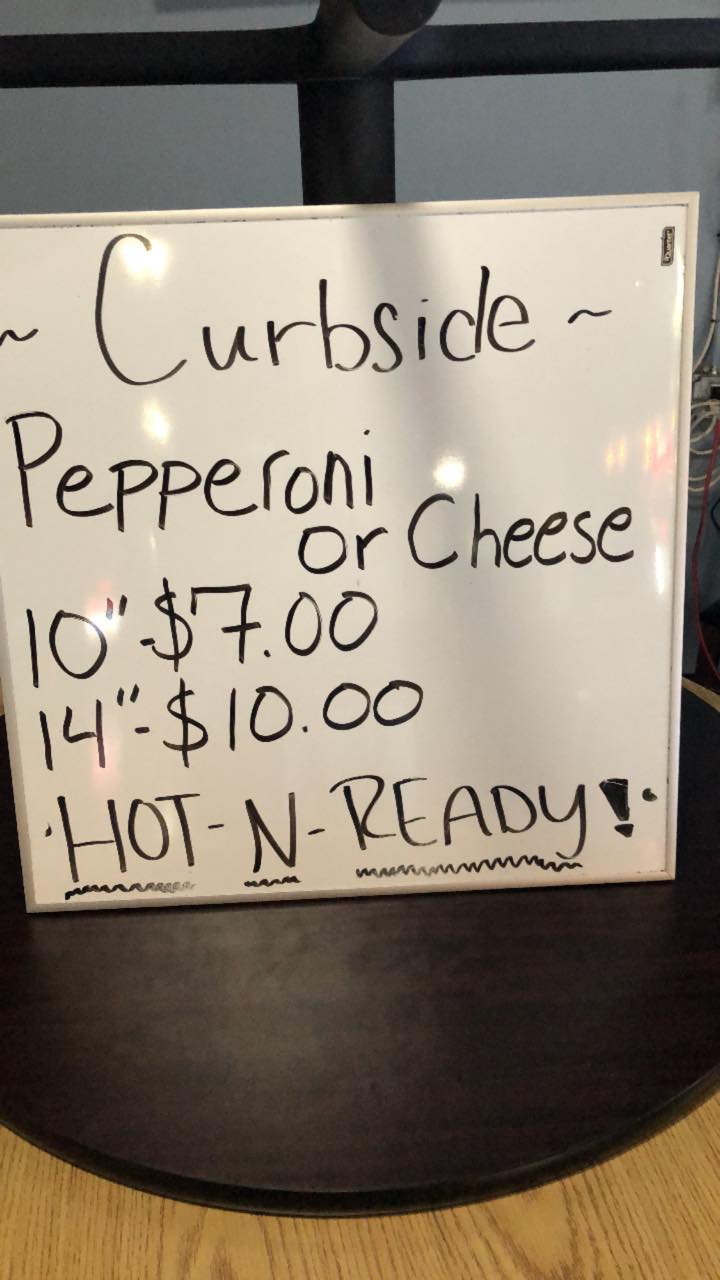 ~ Curbside ~
Pepperoni
or Cheese
10"-$7.00
14"-$10.00
·HOT-N-READY!·